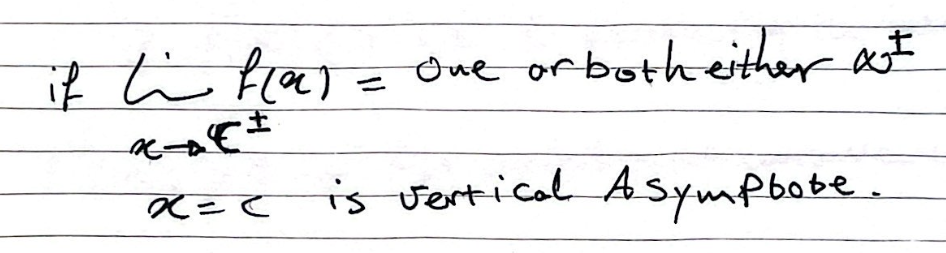 if lim f(x) = one or both either ∞±
x→c±
x=c is vertical Asymptote.